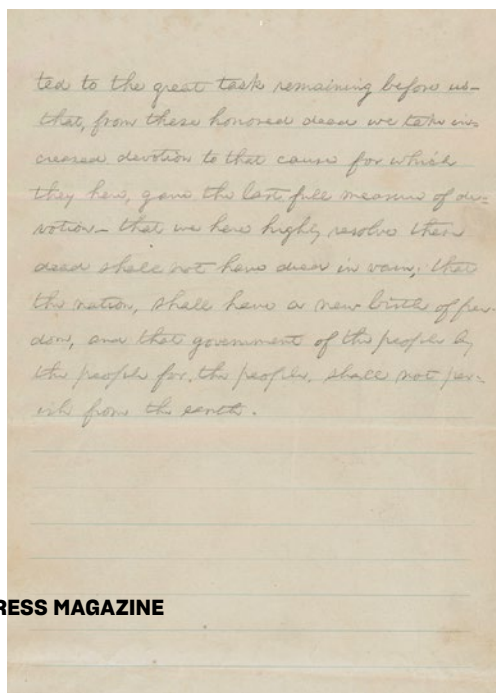 ted to the great task remaining before us—
that, from these honored dead we take in=
creased devotion to that cause for which
they here, gave the last full measure of de=
votion— that we here highly resolve these
dead shall not have died in vain; that
the nation, shall have a new birth of free-
dom, and that government of the people by
the people for, the people, shall not per=
ish from the earth.
RESS MAGAZINE